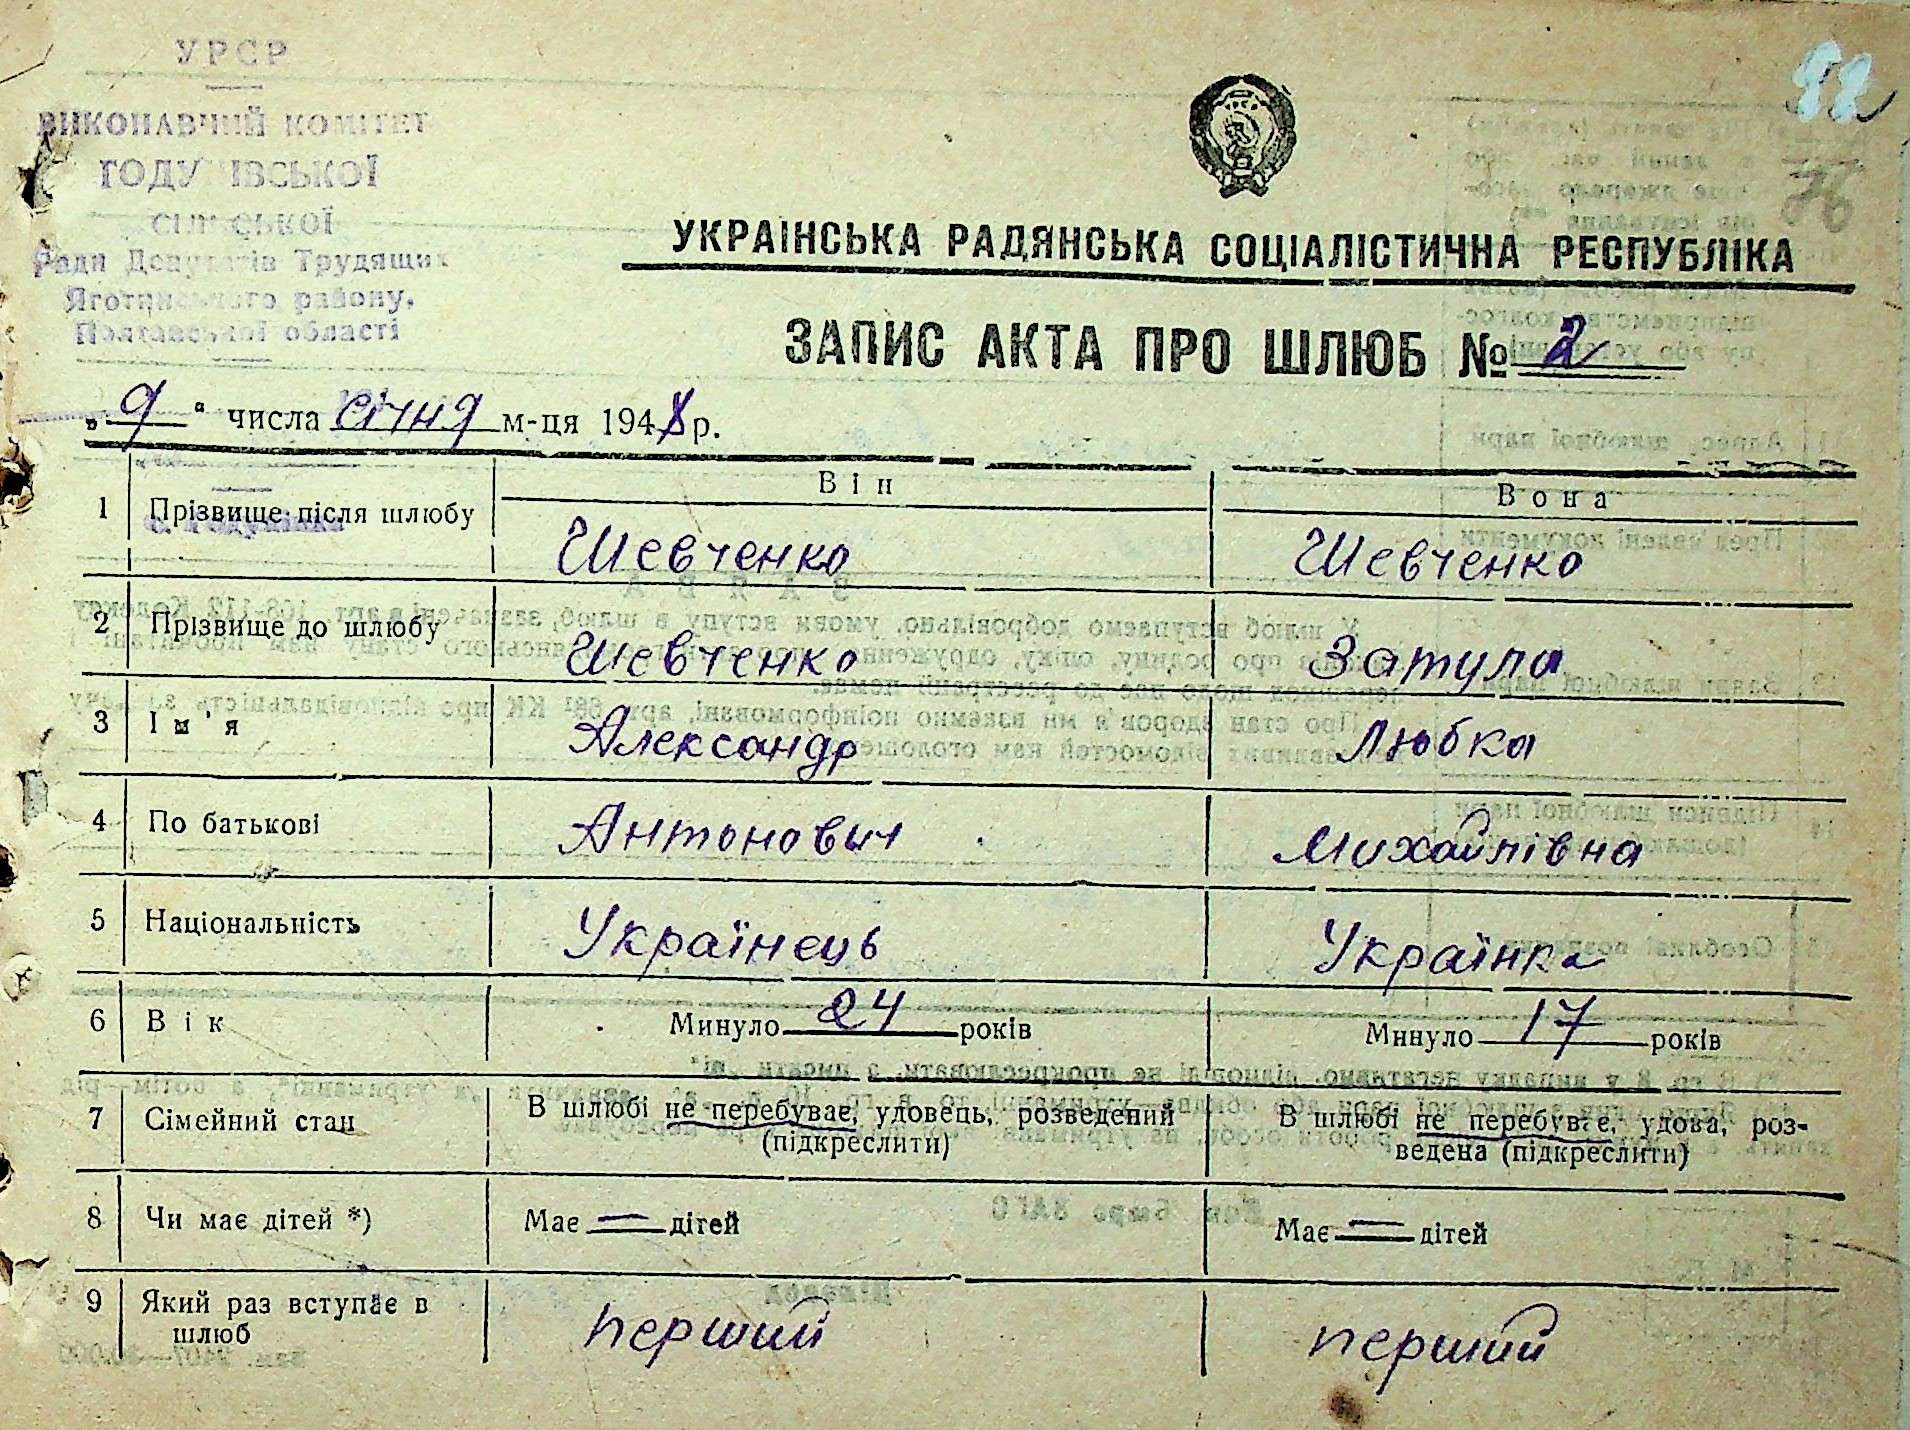 УРСР
ВИКОНАВЧИЙ КОМІТЕТ
СІЛЬСЬКОЇ
Ради Депутатів Трудящих
Яготинського району,
Полтавської області
УКРАЇНСЬКА РАДЯНСЬКА СОЦІАЛІСТИЧНА РЕСПУБЛІКА
ЗАПИС АКТА ПРО ШЛЮБ № 2
„9“ числа січня м-ця 1948 р.
Він Вона
1 Прізвище після шлюбу Шевченко Шевченко
2 Прізвище до шлюбу Шевченко Затула
3 Ім'я Александр Любка
4 По батькові Антонович Михайлівна
5 Національність Українець Українка
6 Вік Минуло 24 років Минуло 17 років
7 Сімейний стан В шлюбі не перебуває, удовець, розведений (підкреслити) В шлюбі не перебуває, удова, роз-
ведена (підкреслити)
8 Чи має дітей *) Має — дітей Має — дітей
9 Який раз вступає в шлюб перший перший